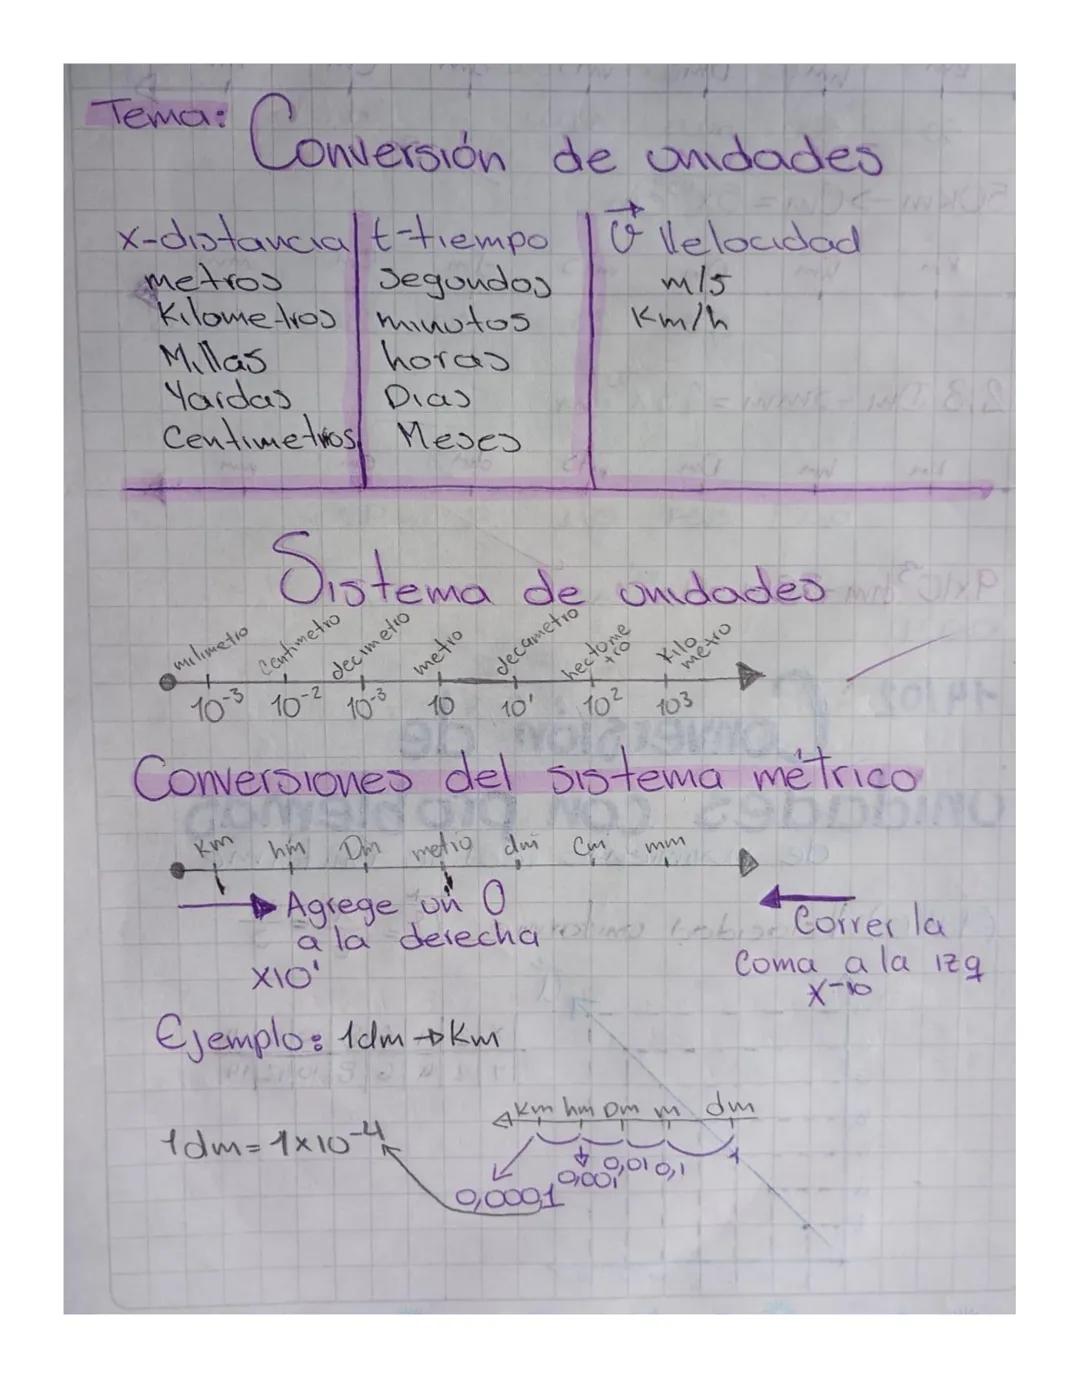 Tema: Conversión de unidades
x-distancia t-tiempo v Velocidad
metros segundos m/s
Kilometros minutos Km/h
Millas horas
Yardas Dias
Centimetros Meses
Sistema de unidades
milimetro centimetro decimetro metro decametro hectometro Kilometro
10⁻³ 10⁻² 10⁻³ 10 10¹ 10² 10³
Conversiones del sistema métrico
Km hm Dm metro dm Cm mm
Agrege un 0
a la derecha
x10¹
Correr la
Coma a la izq
x⁻¹⁰
Ejemplo: 1dm → Km
Km hm Dm m dm
1dm = 1x10⁻⁴
0,0001 0,001 0,01 0,1 1